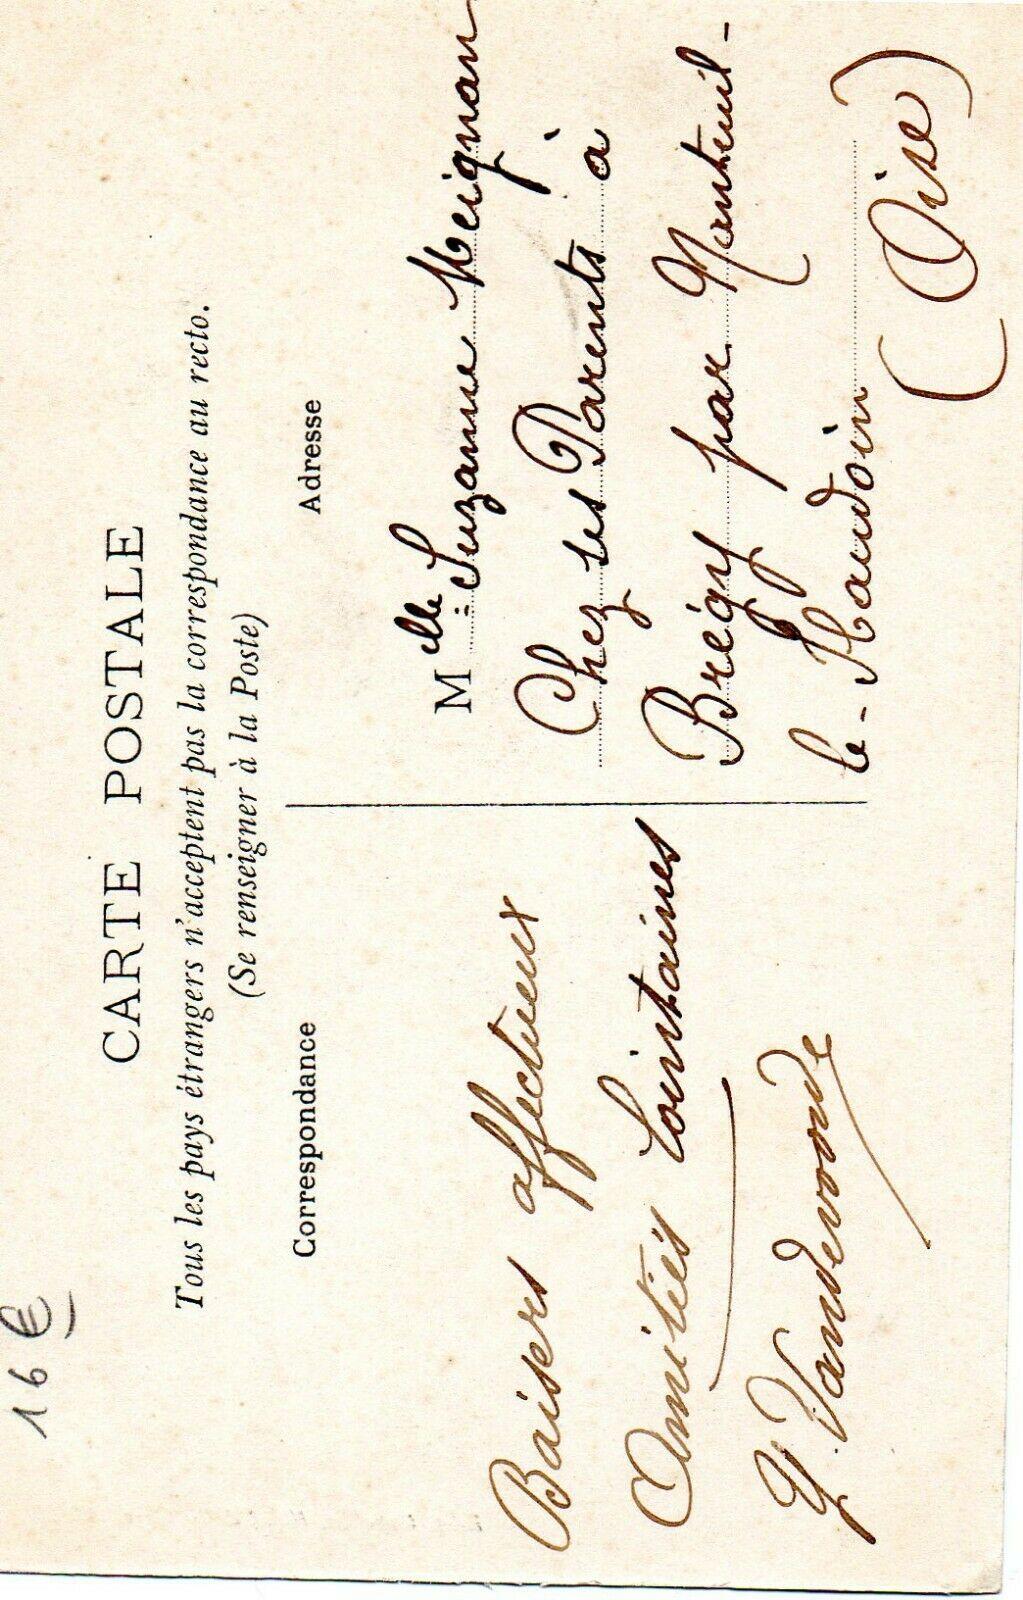 16 €
CARTE POSTALE
Tous les pays étrangers n'acceptent pas la correspondance au recto.
(Se renseigner à la Poste)
Correspondance
Baisers affectueux
Amitiés Lointaines
Y. Vandevoorde
Adresse
Melle Suzanne Meignan
Chez ses Parents à
Brégy par Nanteuil-
le-Haudoin
(Oise)